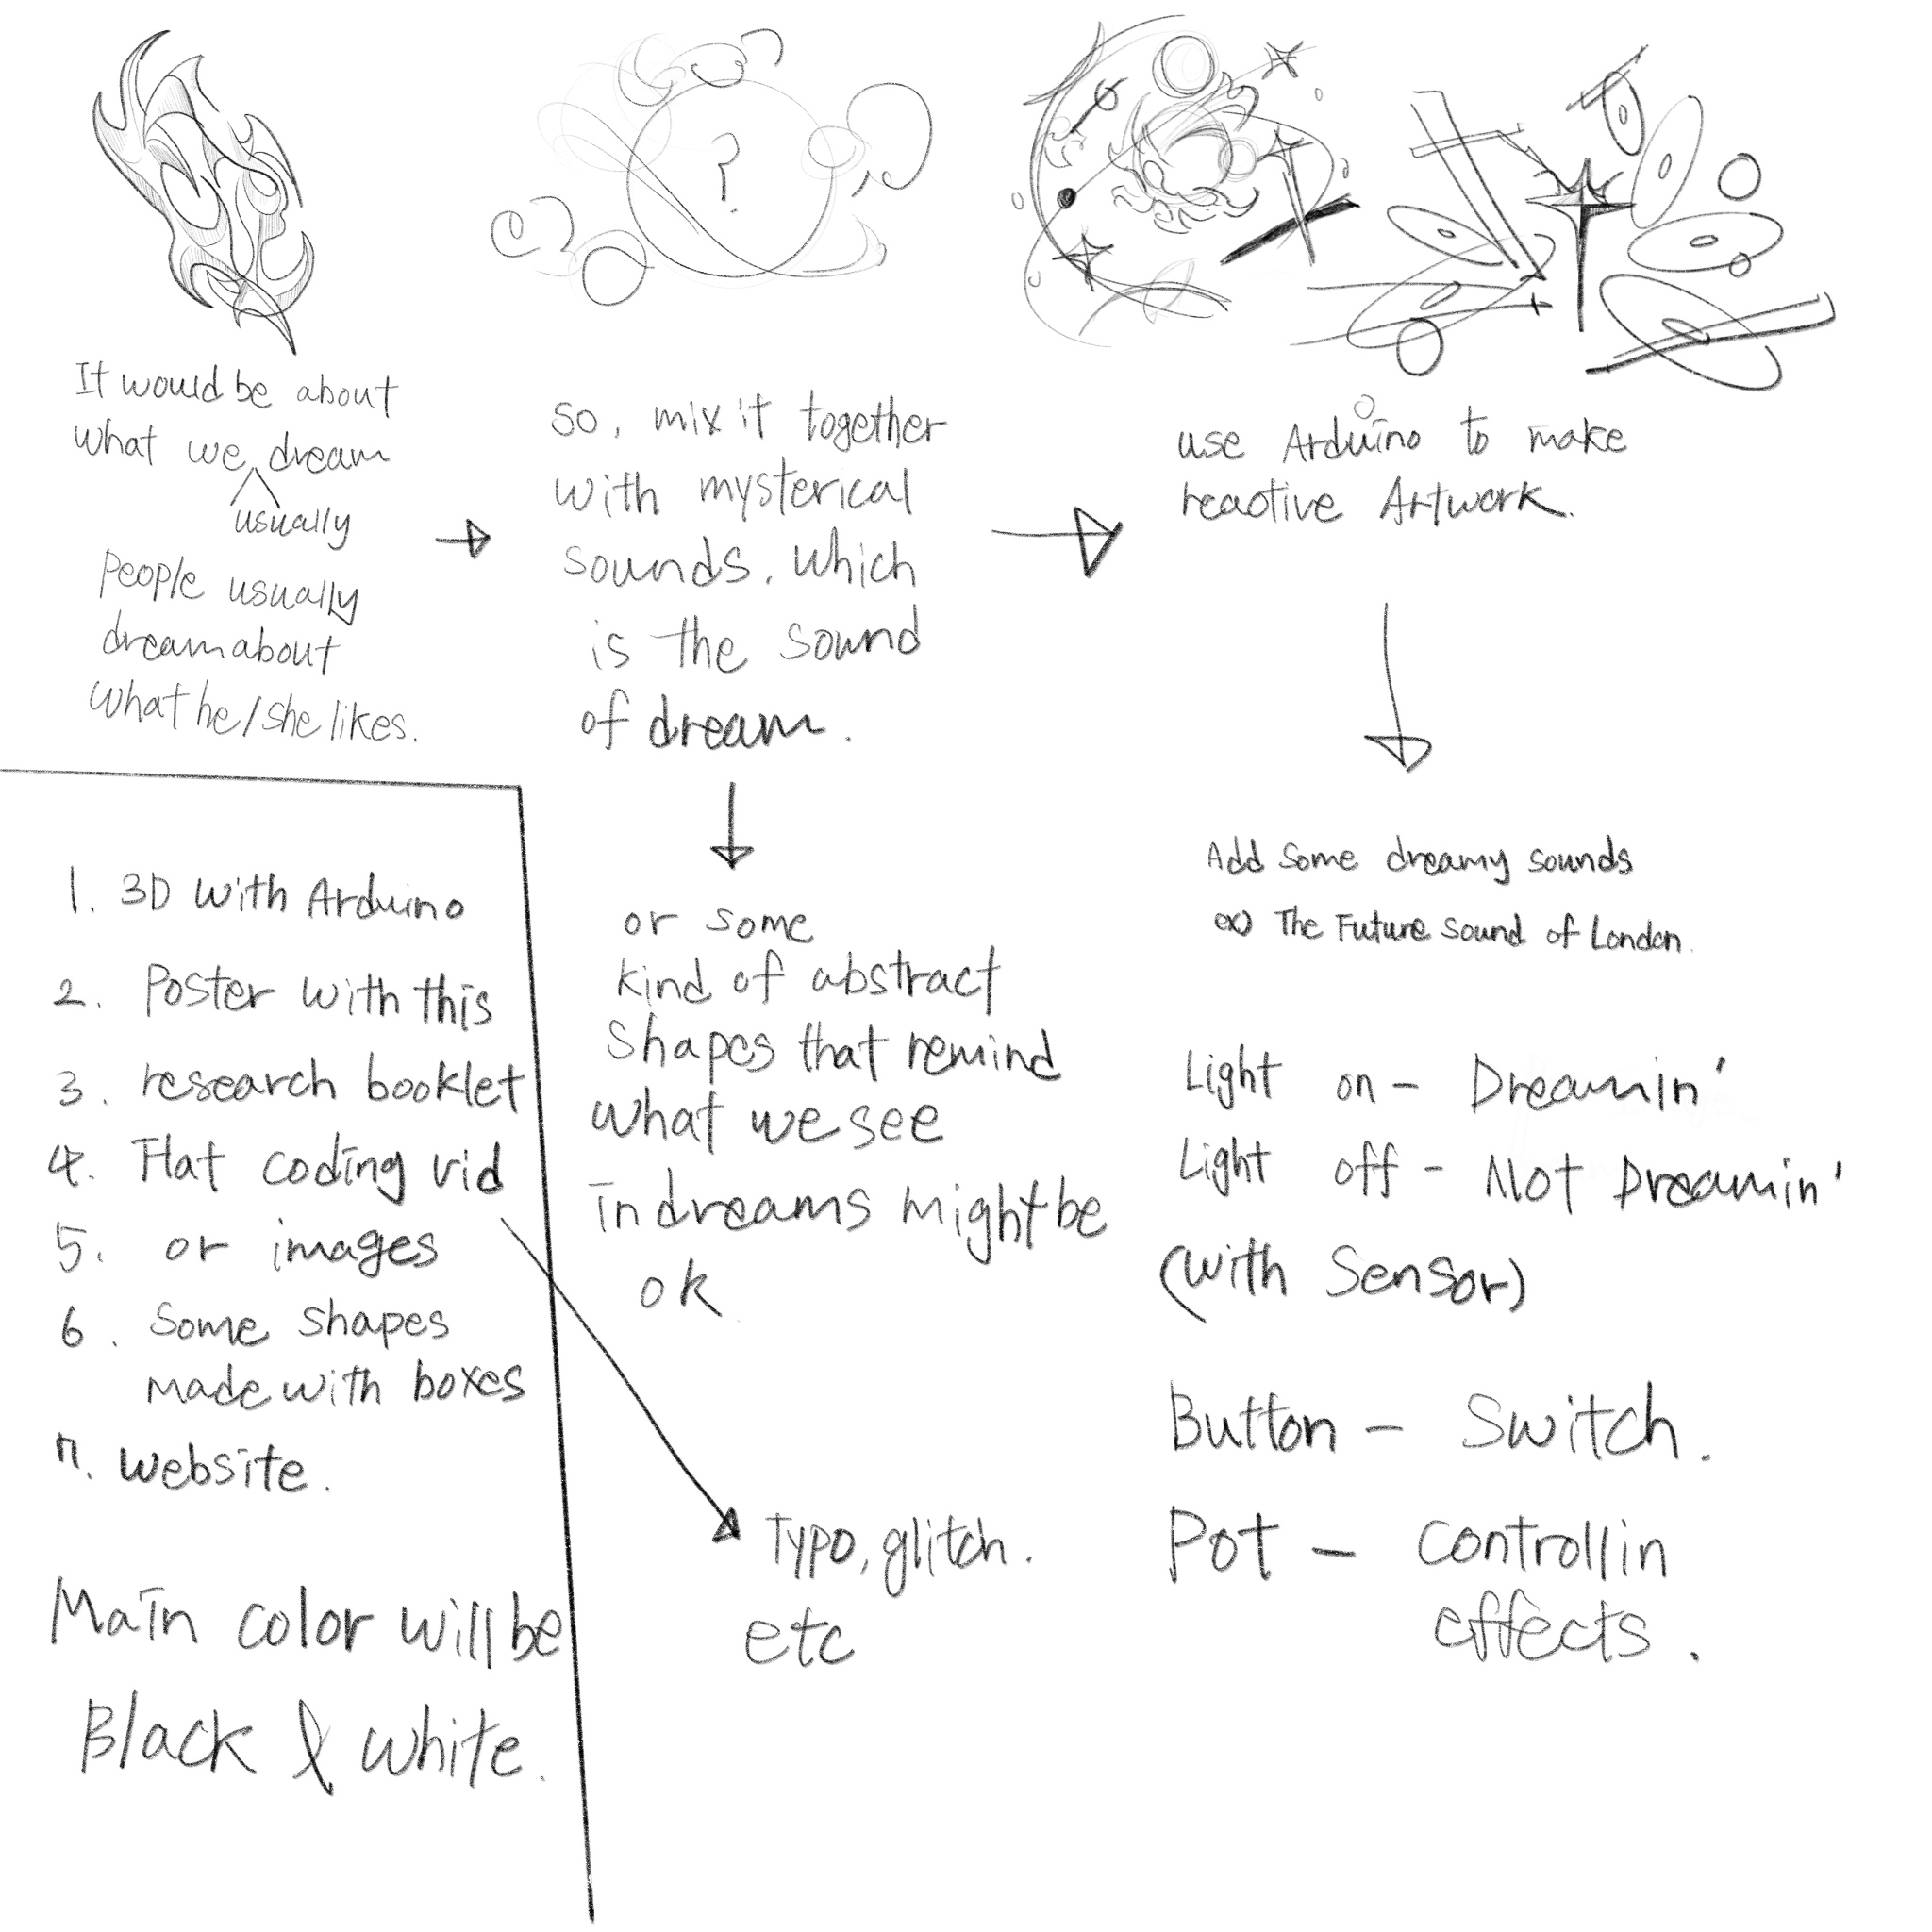 It would be about
what we dream
usually
People usually
dream about
what he/she likes.
?
so, mix it together
with mysterical
sounds, which
is the sound
of dream.
or some
kind of abstract
shapes that remind
what we see
in dreams might be
ok
use Arduino to make
reactive Artwork.
Add some dreamy sounds
ex) The Future Sound of London.
Light on - Dreamin'
Light off - Not Dreamin'
(with Sensor)
Button - Switch.
Pot - Controllin
effects.
1. 3D with Arduino
2. Poster with this
3. research booklet
4. Flat coding vid
5. or images
6. Some shapes
made with boxes
7. website.
Typo, glitch.
etc
Main color will be
Black & white.